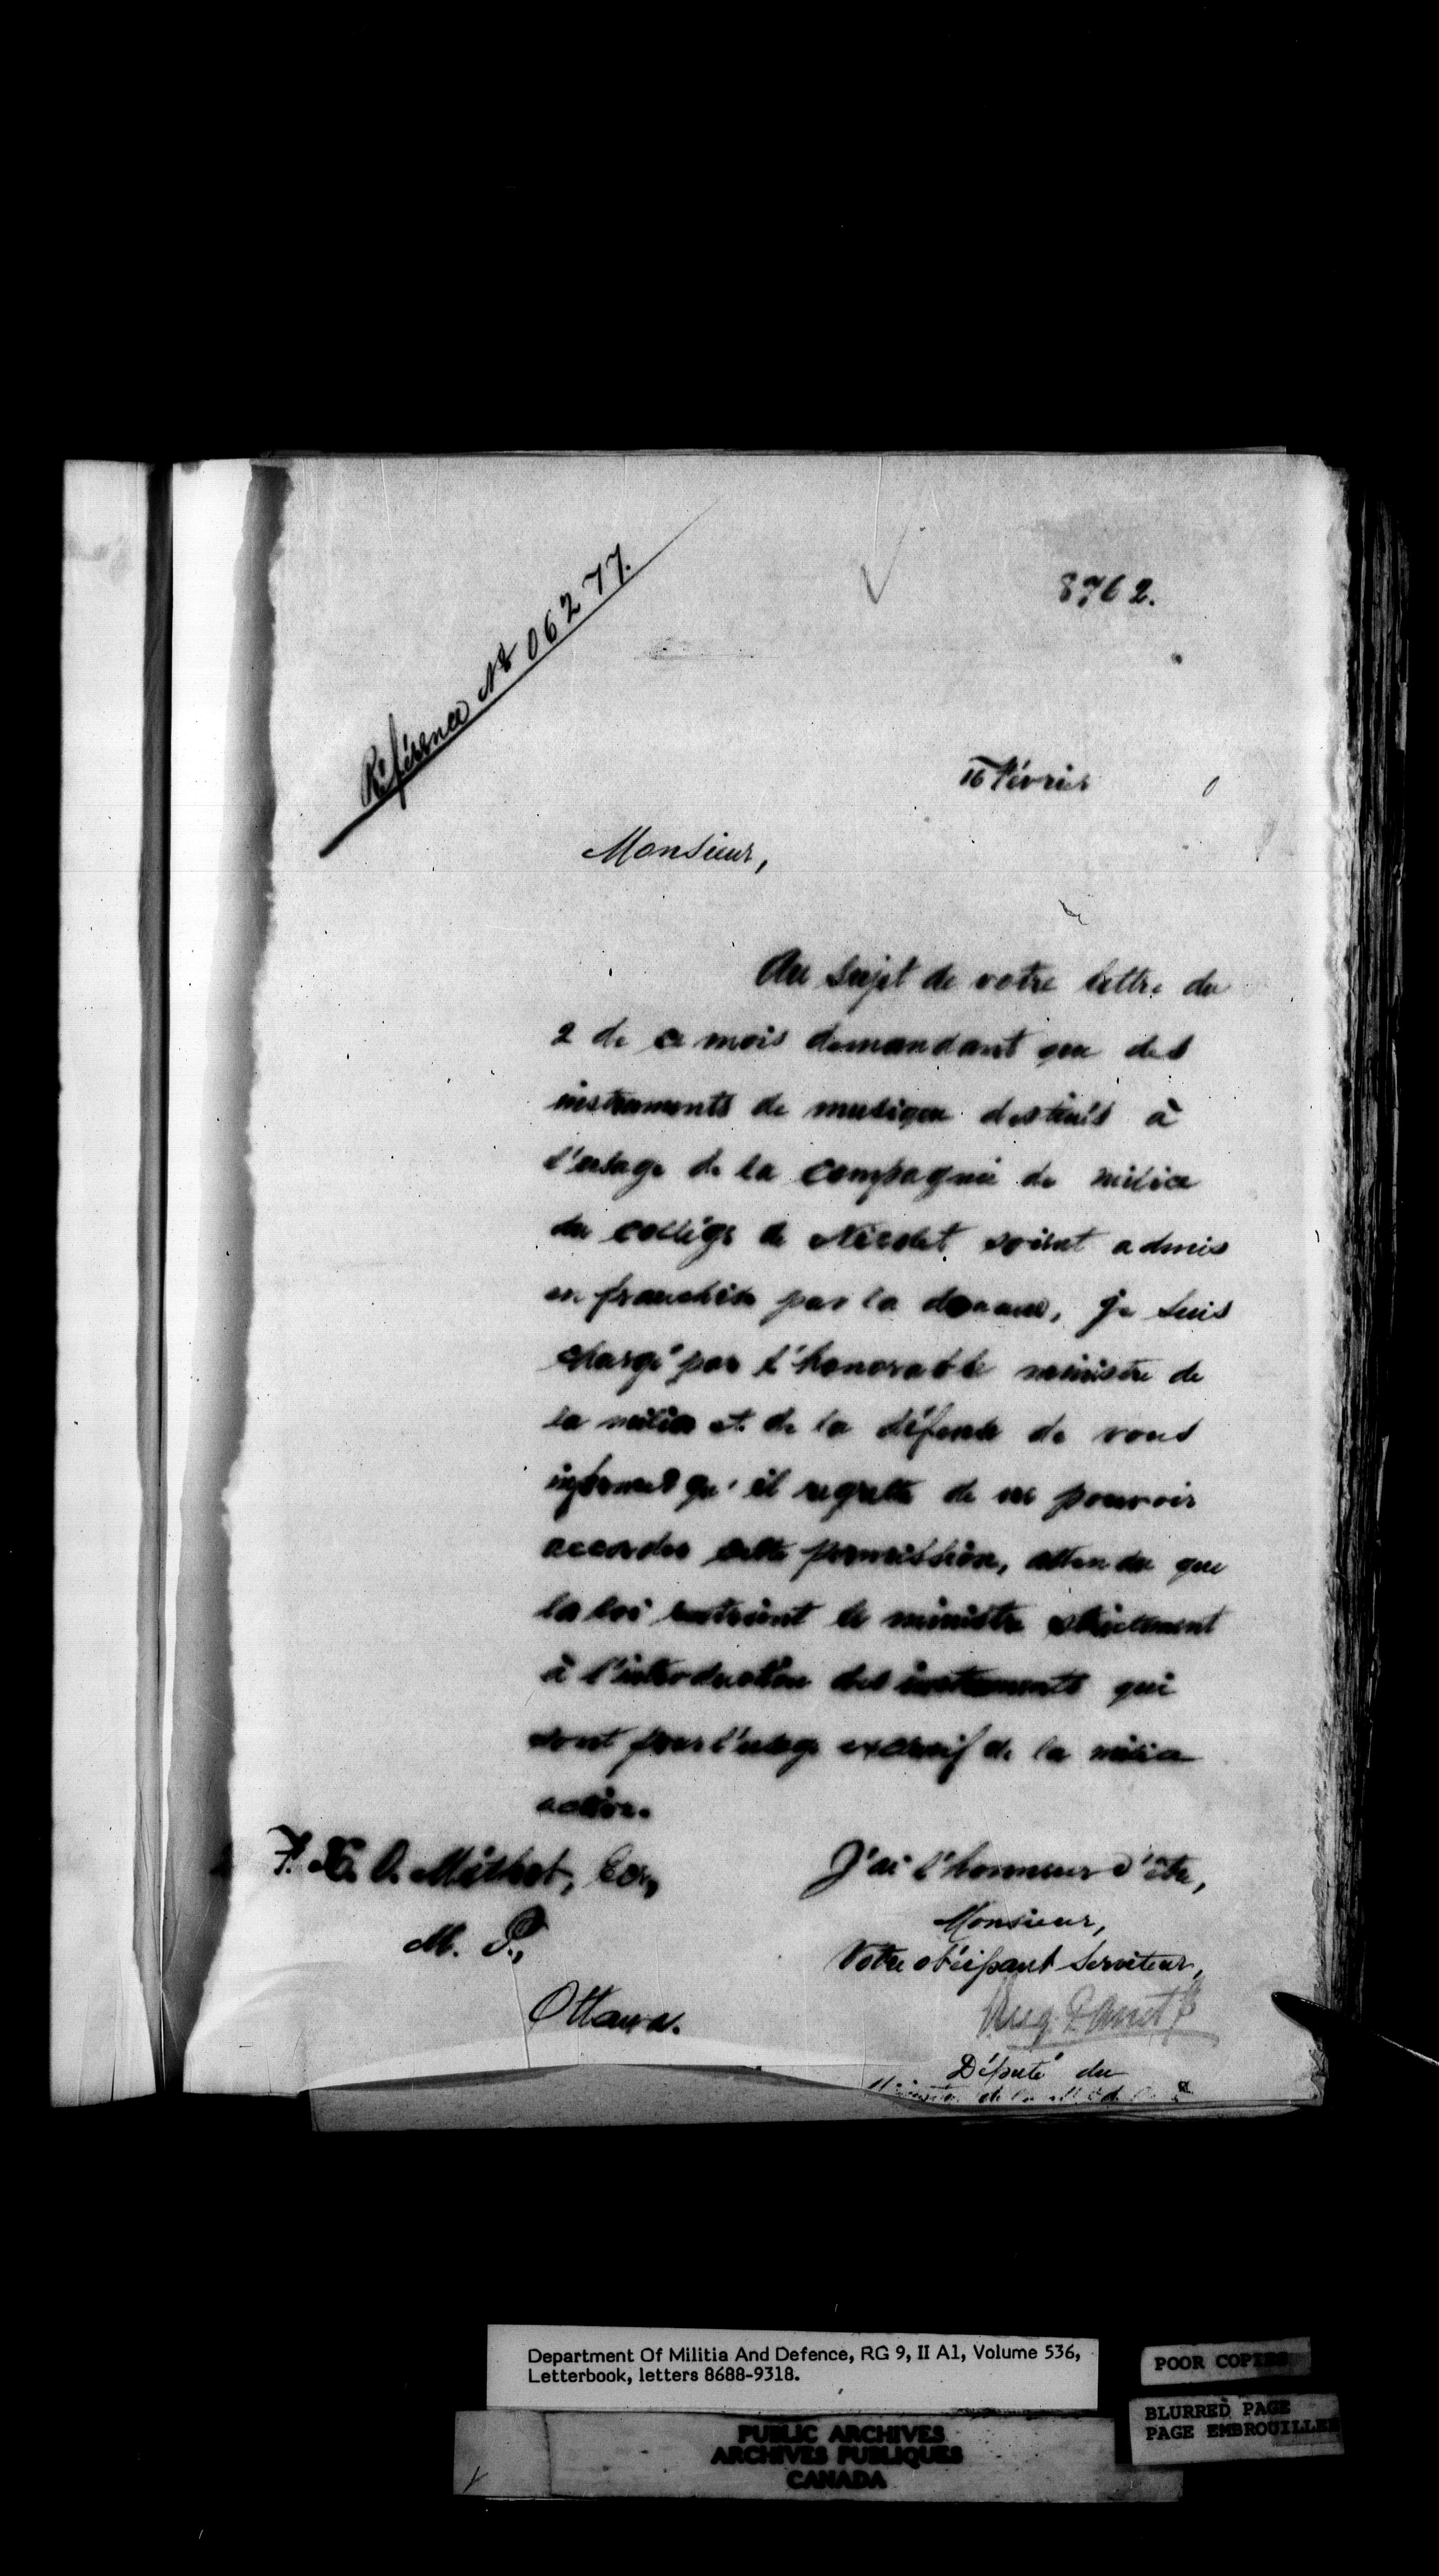 8762.
Référence No 06277.
16 Février
Monsieur,
Au sujet de votre lettre du
2 de ce mois demandant que des
instruments de musique destinés à
l'usage de la compagnie de milice
du collège de Nicolet soient admis
en franchise par la douane, je suis
chargé par l'honorable ministre de
la milice et de la défense de vous
informer qu'il regrette de ne pouvoir
accorder cette permission, attendu que
la loi restreint le ministre strictement
à l'introduction des instruments qui
sont pour l'usage exclusif de la milice
active.
J'ai l'honneur d'être,
Monsieur,
Votre obéissant Serviteur,
Député du
F. X. O. Méthot, Ecr,
M. P.,
Ottawa.
Department Of Militia And Defence, RG 9, II A1, Volume 536,
Letterbook, letters 8688-9318.
POOR COPIES
BLURRED PAGE
PAGE EMBROUILLEE
PUBLIC ARCHIVES
ARCHIVES PUBLIQUES
CANADA